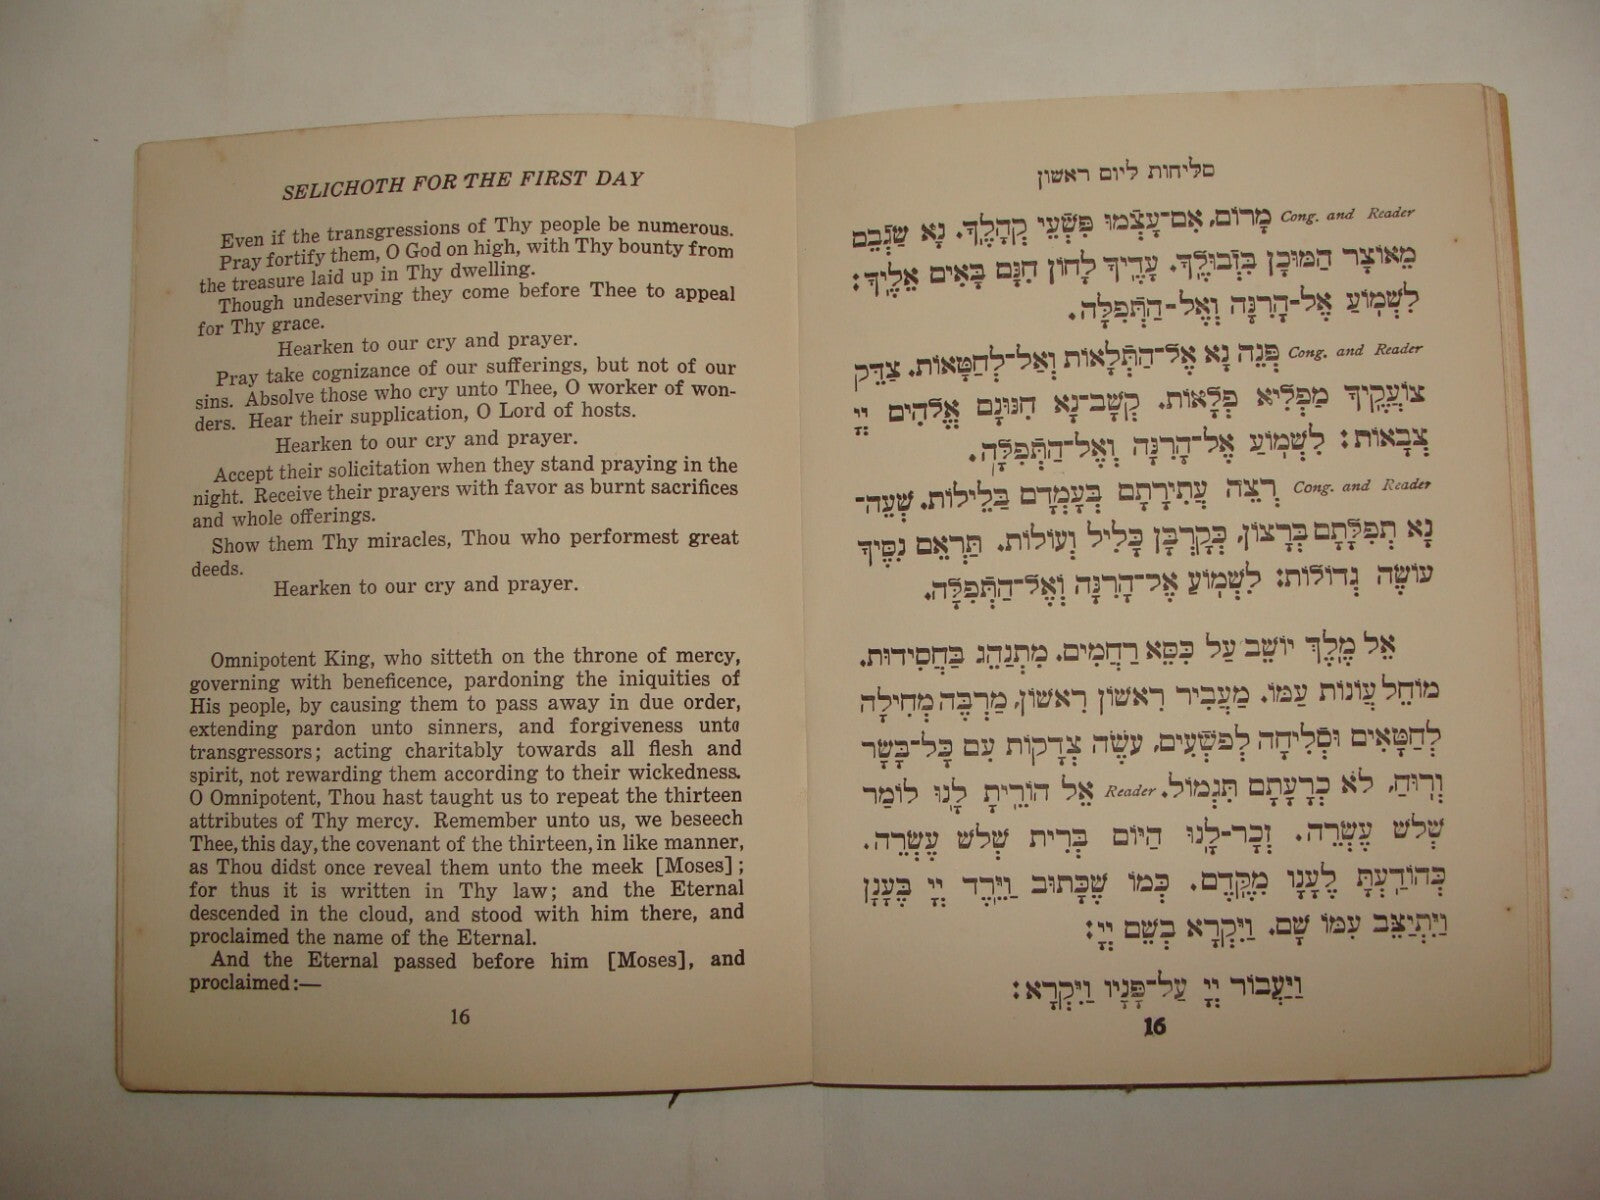 SELICHOTH FOR THE FIRST DAY
Even if the transgressions of Thy people be numerous.
Pray fortify them, O God on high, with Thy bounty from
the treasure laid up in Thy dwelling.
Though undeserving they come before Thee to appeal
for Thy grace.
Hearken to our cry and prayer.
Pray take cognizance of our sufferings, but not of our
sins. Absolve those who cry unto Thee, O worker of won-
ders. Hear their supplication, O Lord of hosts.
Hearken to our cry and prayer.
Accept their solicitation when they stand praying in the
night. Receive their prayers with favor as burnt sacrifices
and whole offerings.
Show them Thy miracles, Thou who performest great
deeds.
Hearken to our cry and prayer.
Omnipotent King, who sitteth on the throne of mercy,
governing with beneficence, pardoning the iniquities of
His people, by causing them to pass away in due order,
extending pardon unto sinners, and forgiveness unto
transgressors; acting charitably towards all flesh and
spirit, not rewarding them according to their wickedness.
O Omnipotent, Thou hast taught us to repeat the thirteen
attributes of Thy mercy. Remember unto us, we beseech
Thee, this day, the covenant of the thirteen, in like manner,
as Thou didst once reveal them unto the meek [Moses];
for thus it is written in Thy law; and the Eternal
descended in the cloud, and stood with him there, and
proclaimed the name of the Eternal.
And the Eternal passed before him [Moses], and
proclaimed:—
16
סליחות ליום ראשון
Cong. and Reader מָרוֹם, אִם־עָצְמוּ פִּשְׁעֵי קְהָלֶךָ. נָא שַׂגְּבֵם
מֵאוֹצָר הַמּוּכָן בִּזְבוּלֶךָ. עָדֶיךָ לָחוֹן חִנָּם בָּאִים אֵלֶיךָ:
לִשְׁמוֹעַ אֶל־הָרִנָּה וְאֶל־הַתְּפִלָּה.
Cong. and Reader פְּנֵה נָא אֶל־הַתְּלָאוֹת וְאַל־לְחַטָּאוֹת. צַדֵּק
צוֹעֲקֶיךָ מַפְלִיא פְלָאוֹת. קְשָׁב־נָא חִנּוּנָם אֱלֹהִים יְיָ
צְבָאוֹת: לִשְׁמוֹעַ אֶל־הָרִנָּה וְאֶל־הַתְּפִלָּה.
Cong. and Reader רְצֵה עֲתִירָתָם בְּעָמְדָם בַּלֵּילוֹת. שְׁעֵה־
נָא תְפִלָּתָם בְּרָצוֹן, כְּקָרְבַּן כָּלִיל וְעוֹלוֹת. תַּרְאֵם נִסֶּיךָ
עוֹשֶׂה גְדוֹלוֹת: לִשְׁמוֹעַ אֶל־הָרִנָּה וְאֶל־הַתְּפִלָּה.
אֵל מֶלֶךְ יוֹשֵׁב עַל כִּסֵּא רַחֲמִים. מִתְנַהֵג בַּחֲסִידוּת.
מוֹחֵל עֲוֹנוֹת עַמּוֹ. מַעֲבִיר רִאשׁוֹן רִאשׁוֹן, מַרְבֶּה מְחִילָה
לְחַטָּאִים וּסְלִיחָה לְפֹשְׁעִים, עֹשֶׂה צְדָקוֹת עִם כָּל־בָּשָׂר
וְרוּחַ, לֹא כְרָעָתָם תִּגְמוֹל. Reader אֵל הוֹרֵיתָ לָּנוּ לוֹמַר
שְׁלֹשׁ עֶשְׂרֵה. זְכָר־לָנוּ הַיּוֹם בְּרִית שְׁלֹשׁ עֶשְׂרֵה.
כְּהוֹדַעְתָּ לֶעָנָו מִקֶּדֶם. כְּמוֹ שֶׁכָּתוּב וַיֵּרֶד יְיָ בֶּעָנָן
וַיִּתְיַצֵּב עִמּוֹ שָׁם. וַיִּקְרָא בְשֵׁם יְיָ:
וַיַּעֲבוֹר יְיָ עַל־פָּנָיו וַיִּקְרָא:
16